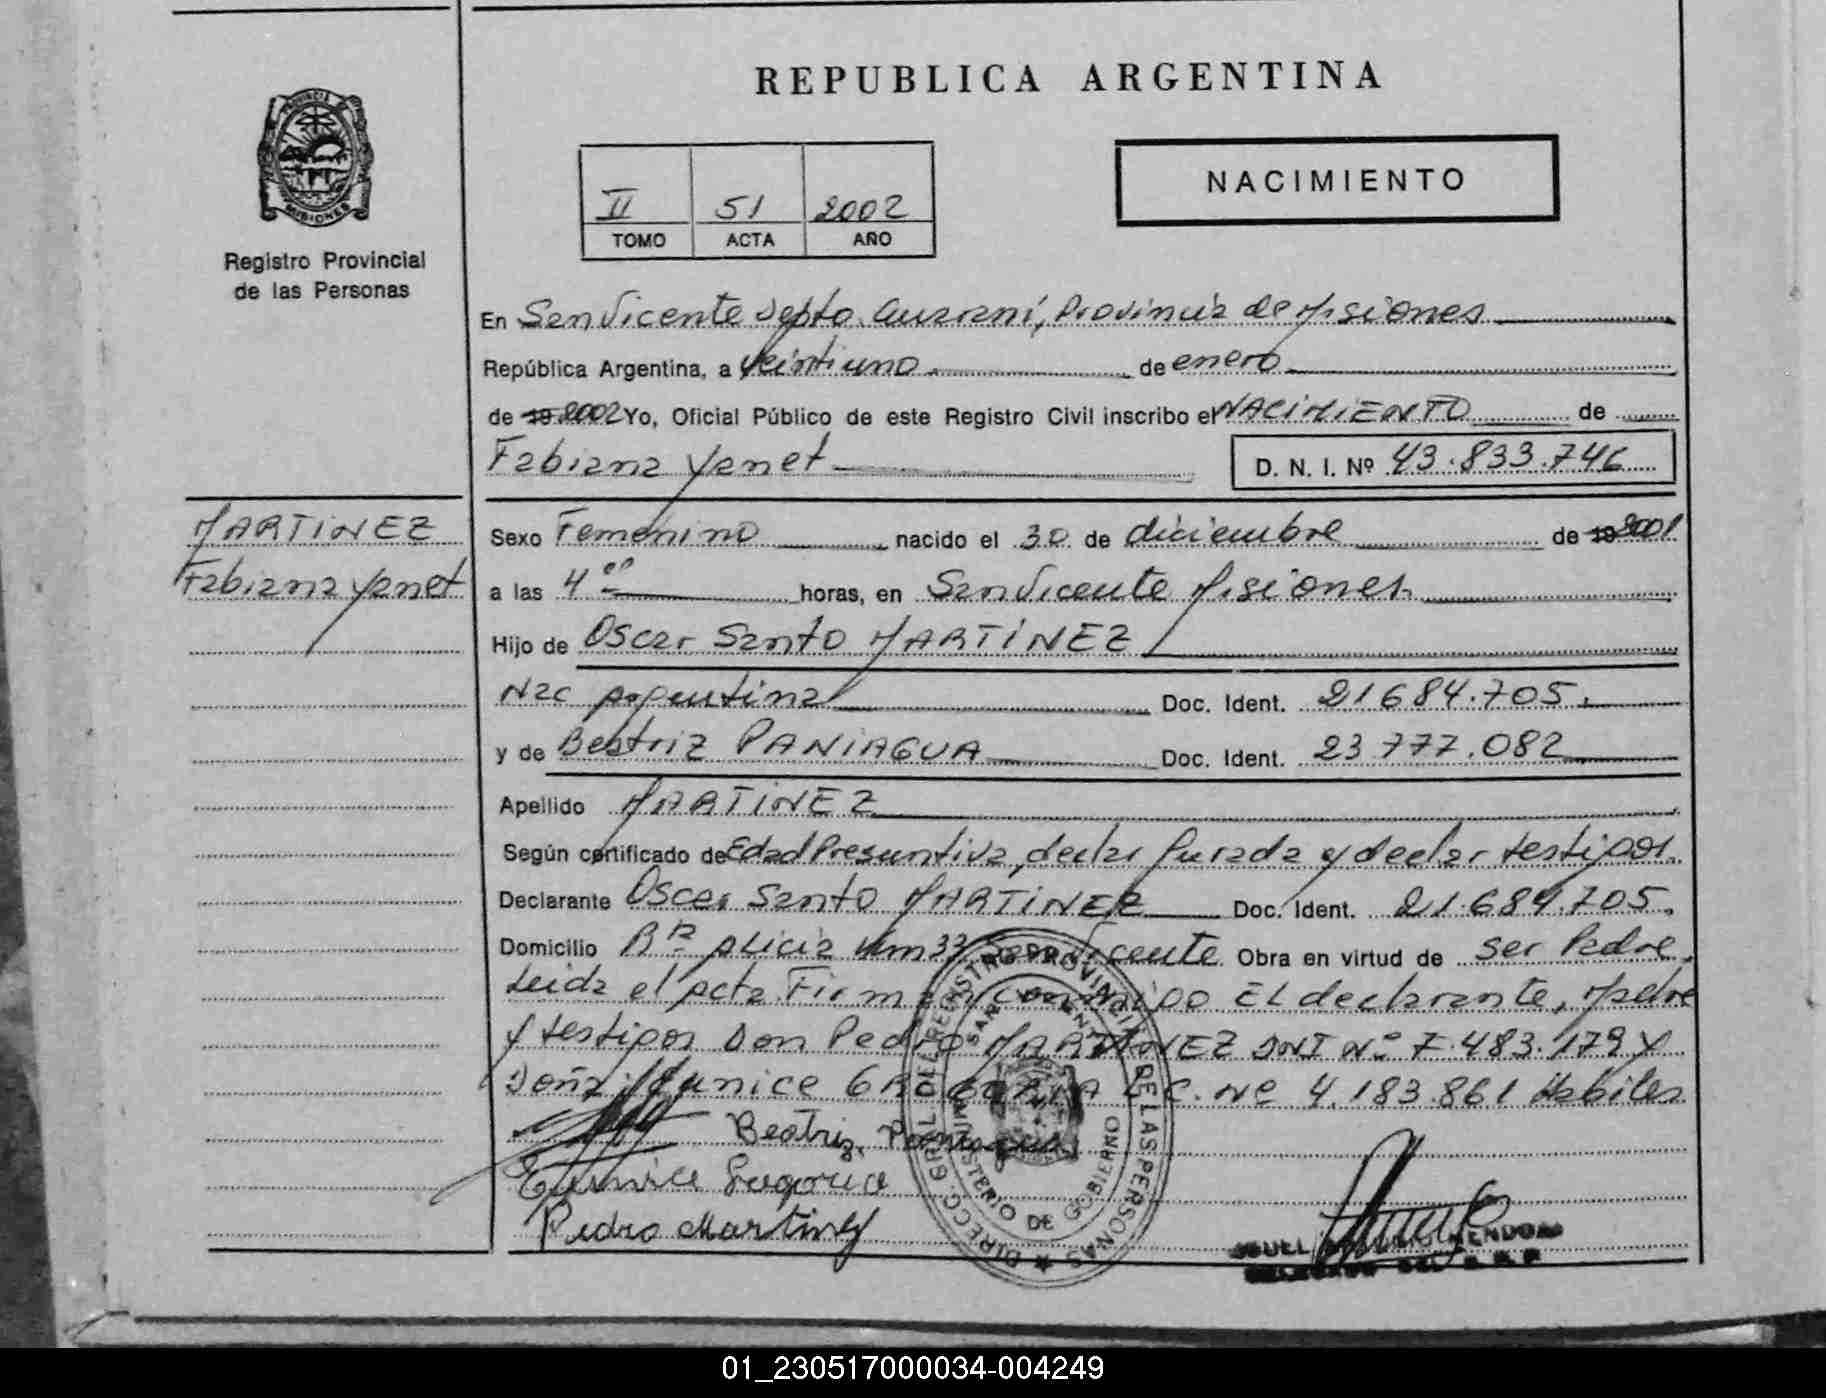 REPUBLICA ARGENTINA
PROVINCIA DE
MISIONES
Registro Provincial
de las Personas
II 51 2002
TOMO ACTA AÑO
NACIMIENTO
En San Vicente Depto. Guaraní, Provincia de Misiones
República Argentina, a veintiuno de enero
de 19 2002 Yo, Oficial Público de este Registro Civil inscribo el NACIMIENTO de
Fabiana Yanet D. N. I. Nº 43.833.746
MARTINEZ
Fabiana Yanet
Sexo Femenino nacido el 30 de diciembre de 19 2001
a las 4 horas, en San Vicente Misiones
Hijo de Oscar Santo MARTINEZ
Nac Argentina Doc. Ident. 21684.705
y de Beatriz PANIAGUA Doc. Ident. 23777.082
Apellido MARTINEZ
Según certificado de Edad Presuntiva, declar Jurada y declar testigos
Declarante Oscar Santo MARTINEZ Doc. Ident. 21.684.705
Domicilio Bª Alicia Km 33 San Vicente Obra en virtud de ser Padre
Leida el Acta Firma conmigo El declarante, Madre
y testigos Don Pedro MARTINEZ DNI Nº 7.483.179 y
Doña Eunice L.C. Nº 4.183.861 Habiles
Beatriz Paniagua
Eunice
Pedro Martinez
DIRECC. GRAL DEL REGISTRO PROVINCIAL DE LAS PERSONAS
SAN VICENTE
MINISTERIO DE GOBIERNO
01_230517000034-004249